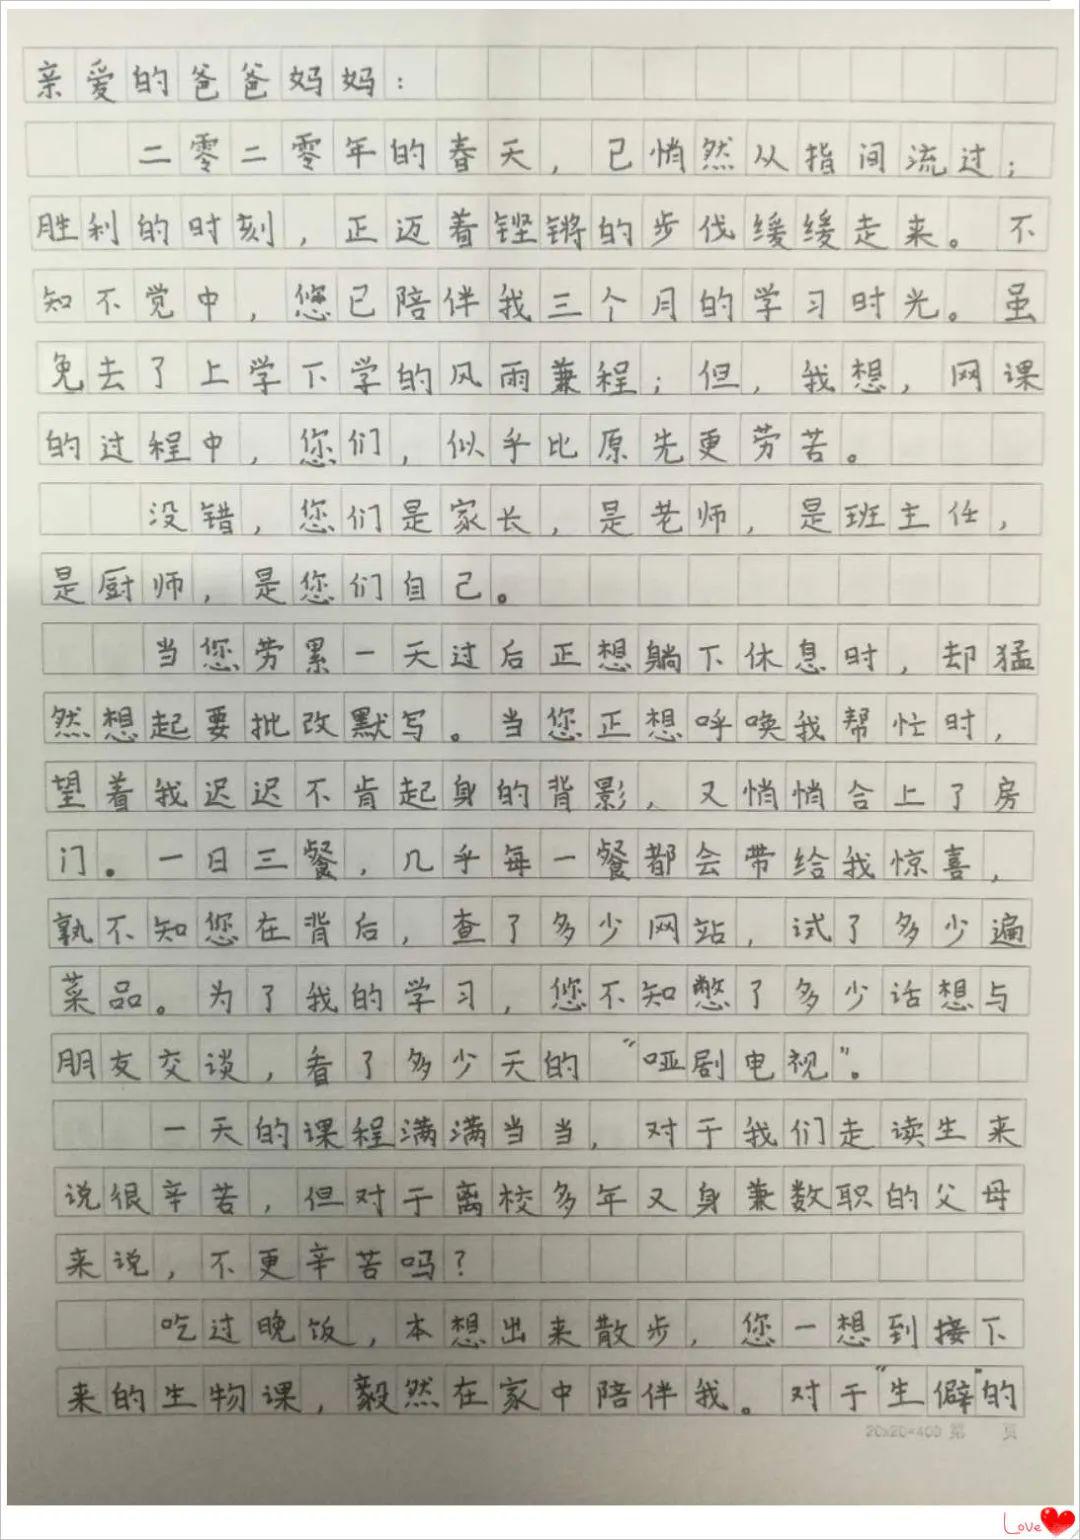 亲爱的爸爸妈妈：
二零二零年的春天，已悄然从指间流过；
胜利的时刻，正迈着铿锵的步伐缓缓走来。不
知不觉中，您已陪伴我三个月的学习时光。虽
免去了上学下学的风雨兼程；但，我想，网课
的过程中，您们，似乎比原先更劳苦。
没错，您们是家长，是老师，是班主任，
是厨师，是您们自己。
当您劳累一天过后正想躺下休息时，却猛
然想起要批改默写。当您正想呼唤我帮忙时，
望着我迟迟不肯起身的背影，又悄悄合上了房
门。一日三餐，几乎每一餐都会带给我惊喜，
孰不知您在背后，查了多少网站，试了多少遍
菜品。为了我的学习，您不知憋了多少话想与
朋友交谈，看了多少天的“哑剧电视”。
一天的课程满满当当，对于我们走读生来
说很辛苦，但对于离校多年又身兼数职的父母
来说，不更辛苦吗？
吃过晚饭，本想出来散步，您一想到接下
来的生物课，毅然在家中陪伴我。对于“生僻”的
20×20=400 第 页
Love